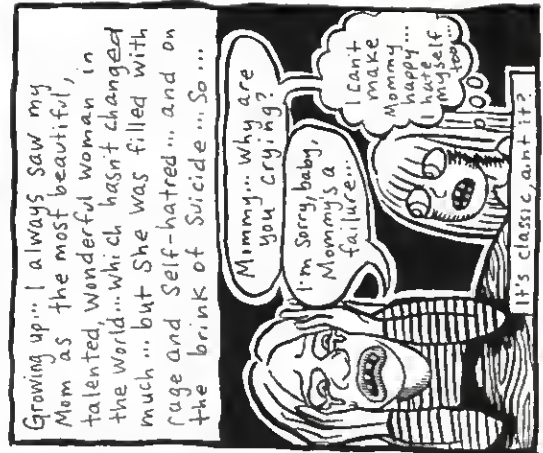 Growing up... I always saw my
Mom as the most beautiful,
talented, wonderful woman in
the world... which hasn't changed
much... but She was filled with
rage and Self-hatred... and on
the brink of Suicide... So...
Mommy... Why are
you crying?
I'm sorry, baby,
Mommy's a
failure...
I can't
make
Mommy
happy...
I hate
myself
too...
It's classic, ain't it?